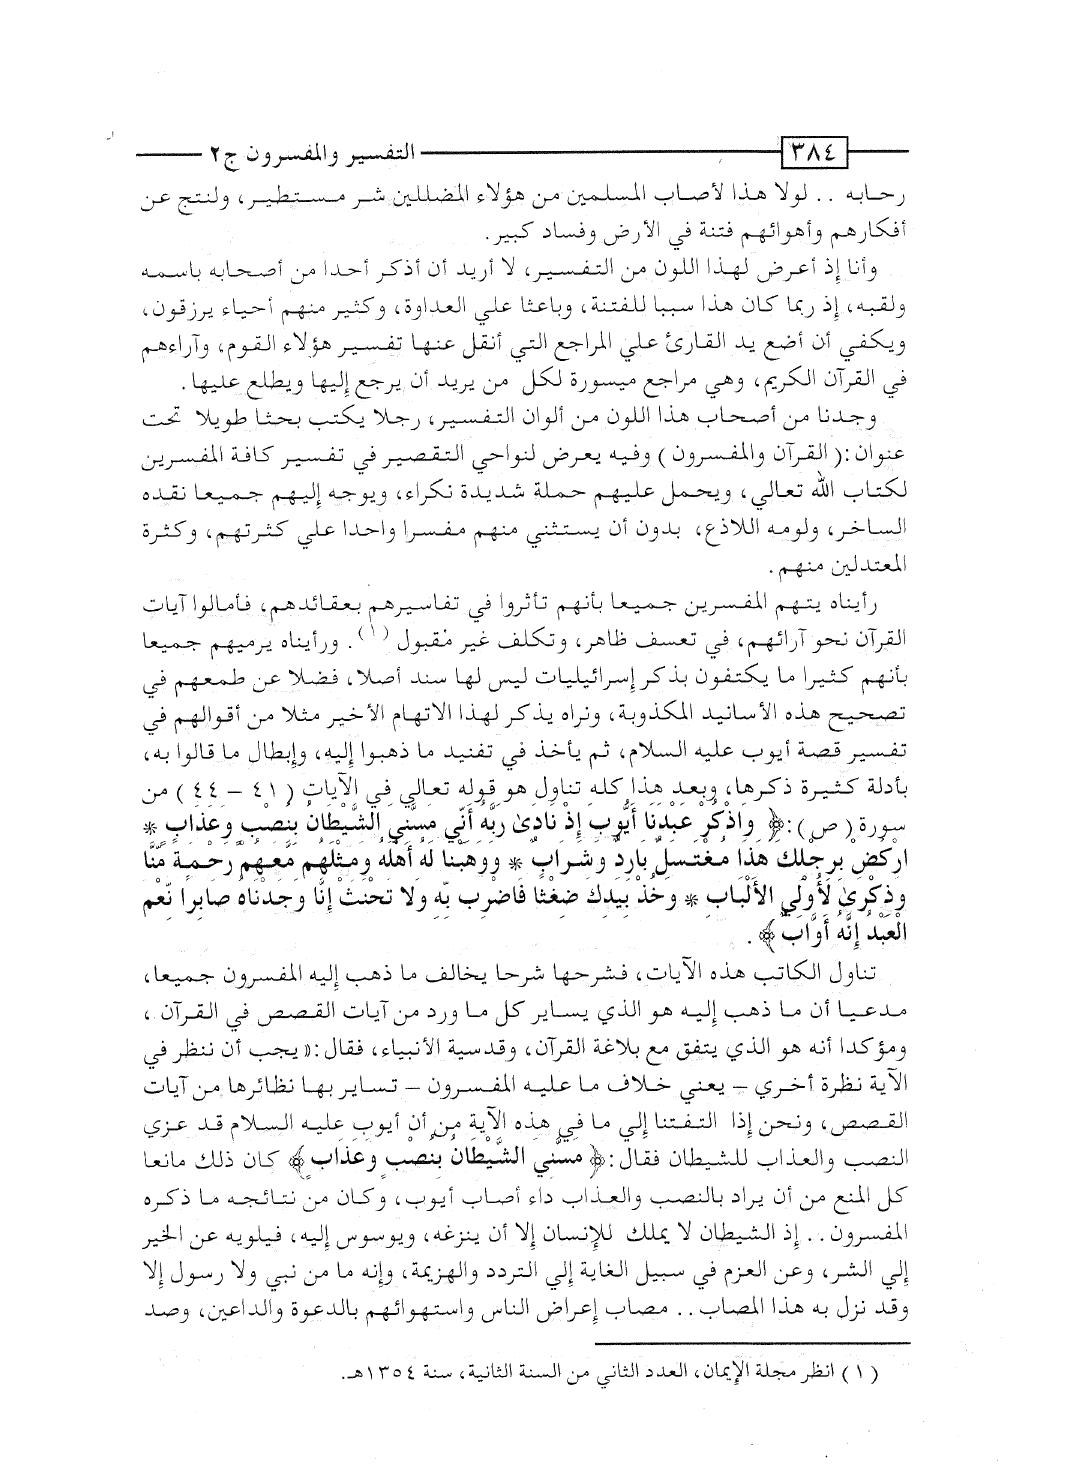 ٣٨٤ التفسير والمفسرون ج٢
رحابه .. لولا هذا لأصاب المسلمين من هؤلاء المضللين شر مستطير، ولنتج عن
أفكارهم وأهوائهم فتنة في الأرض وفساد كبير.
وأنا إذ أعرض لهذا اللون من التفسير، لا أريد أن أذكر أحدا من أصحابه باسمه
ولقبه، إذ ربما كان هذا سببا للفتنة، وباعثا علي العداوة، وكثير منهم أحياء يرزقون،
ويكفي أن أضع يد القارئ علي المراجع التي أنقل عنها تفسير هؤلاء القوم، وآراءهم
في القرآن الكريم، وهي مراجع ميسورة لكل من يريد أن يرجع إليها ويطلع عليها.
وجدنا من أصحاب هذا اللون من ألوان التفسير، رجلا يكتب بحثا طويلا تحت
عنوان :( القرآن والمفسرون ) وفيه يعرض لنواحي التقصير في تفسير كافة المفسرين
لكتاب الله تعالي، ويحمل عليهم حملة شديدة نكراء، ويوجه إليهم جميعا نقده
الساخر، ولومه اللاذع، بدون أن يستثني منهم مفسرا واحدا علي كثرتهم، وكثرة
المعتدلين منهم.
رأيناه يتهم المفسرين جميعا بأنهم تأثروا في تفاسيرهم بعقائدهم، فأمالوا آيات
القرآن نحو آرائهم، في تعسف ظاهر، وتكلف غير مقبول (١). ورأيناه يرميهم جميعا
بأنهم كثيرا ما يكتفون بذكر إسرائيليات ليس لها سند أصلا، فضلا عن طمعهم في
تصحيح هذه الأسانيد المكذوبة، ونراه يذكر لهذا الاتهام الأخير مثلا من أقوالهم في
تفسير قصة أيوب عليه السلام، ثم يأخذ في تفنيد ما ذهبوا إليه، وإبطال ما قالوا به،
بأدلة كثيرة ذكرها، وبعد هذا كله تناول هو قوله تعالي في الآيات ( ٤١ – ٤٤ ) من
سورة ( ص ) :﴿ وَاذْكُرْ عَبْدَنَا أَيُّوبَ إِذْ نَادَىٰ رَبَّهُ أَنِّي مَسَّنِيَ الشَّيْطَانُ بِنُصْبٍ وَعَذَابٍ *
ارْكُضْ بِرِجْلِكَ هَٰذَا مُغْتَسَلٌ بَارِدٌ وَشَرَابٌ * وَوَهَبْنَا لَهُ أَهْلَهُ وَمِثْلَهُم مَّعَهُمْ رَحْمَةً مِّنَّا
وَذِكْرَىٰ لِأُولِي الْأَلْبَابِ * وَخُذْ بِيَدِكَ ضِغْثًا فَاضْرِب بِّهِ وَلَا تَحْنَثْ إِنَّا وَجَدْنَاهُ صَابِرًا نِّعْمَ
الْعَبْدُ إِنَّهُ أَوَّابٌ ﴾ .
تناول الكاتب هذه الآيات، فشرحها شرحا يخالف ما ذهب إليه المفسرون جميعا،
مدعيا أن ما ذهب إليه هو الذي يساير كل ما ورد من آيات القصص في القرآن ،
ومؤكدا أنه هو الذي يتفق مع بلاغة القرآن، وقدسية الأنبياء، فقال :« يجب أن ننظر في
الآية نظرة أخري – يعني خلاف ما عليه المفسرون – تساير بها نظائرها من آيات
القصص، ونحن إذا التفتنا إلي ما في هذه الآية من أن أيوب عليه السلام قد عزي
النصب والعذاب للشيطان فقال :﴿ مَسَّنِيَ الشَّيْطَانُ بِنُصْبٍ وَعَذَابٍ ﴾ كان ذلك مانعا
كل المنع من أن يراد بالنصب والعذاب داء أصاب أيوب، وكان من نتائجه ما ذكره
المفسرون .. إذ الشيطان لا يملك للإنسان إلا أن ينزغه، ويوسوس إليه، فيلويه عن الخير
إلي الشر، وعن العزم في سبيل الغاية إلي التردد والهزيمة، وإنه ما من نبي ولا رسول إلا
وقد نزل به هذا المصاب .. مصاب إعراض الناس واستهوائهم بالدعوة والداعين، وصد
( ١ ) انظر مجلة الإيمان، العدد الثاني من السنة الثانية، سنة ١٣٥٤هـ.